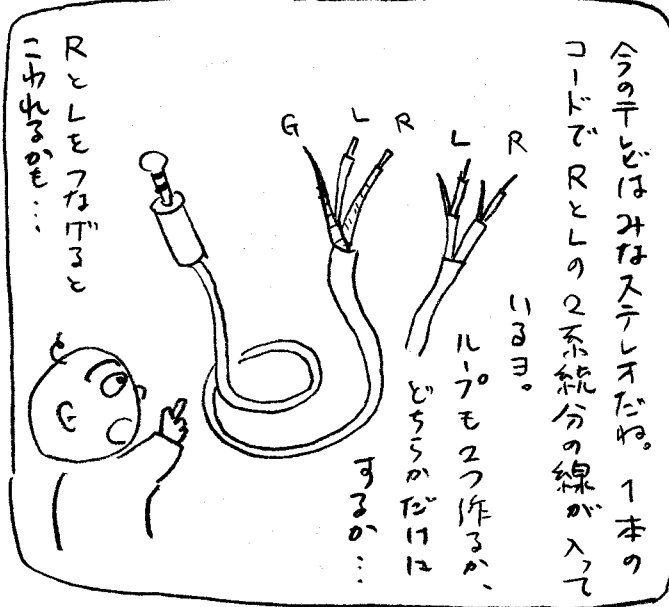 今のテレビはみなステレオだね。1本の
コードでRとLの2系統分の線が入って
いるヨ。
ループも2つ作るか、
どちらかだけに
するか…
G
L
R
L
R
RとLをつなげると
こわれるかも…